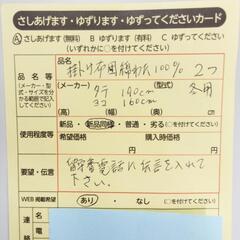 さしあげます・ゆずります・ゆずってくださいカード
A さしあげます（無料） B ゆずります（有料） C ゆずってください
（いずれかに○を付けてください）
品名等
（メーカー・型式・サイズを分かる範囲で記入してください）
（品名）
掛け布団 綿わた100% 2つ
（メーカー） （型式）
タテ 190cm 冬用
ヨコ 160cm
使用程度等
新品・新品同様・普通・劣る（○で囲む）
希望価格 購入時価格
要望・伝言
留守番電話に伝言を入れて
下さい。
WEB掲載希望
あり・なし（○を付けてください）
連
電